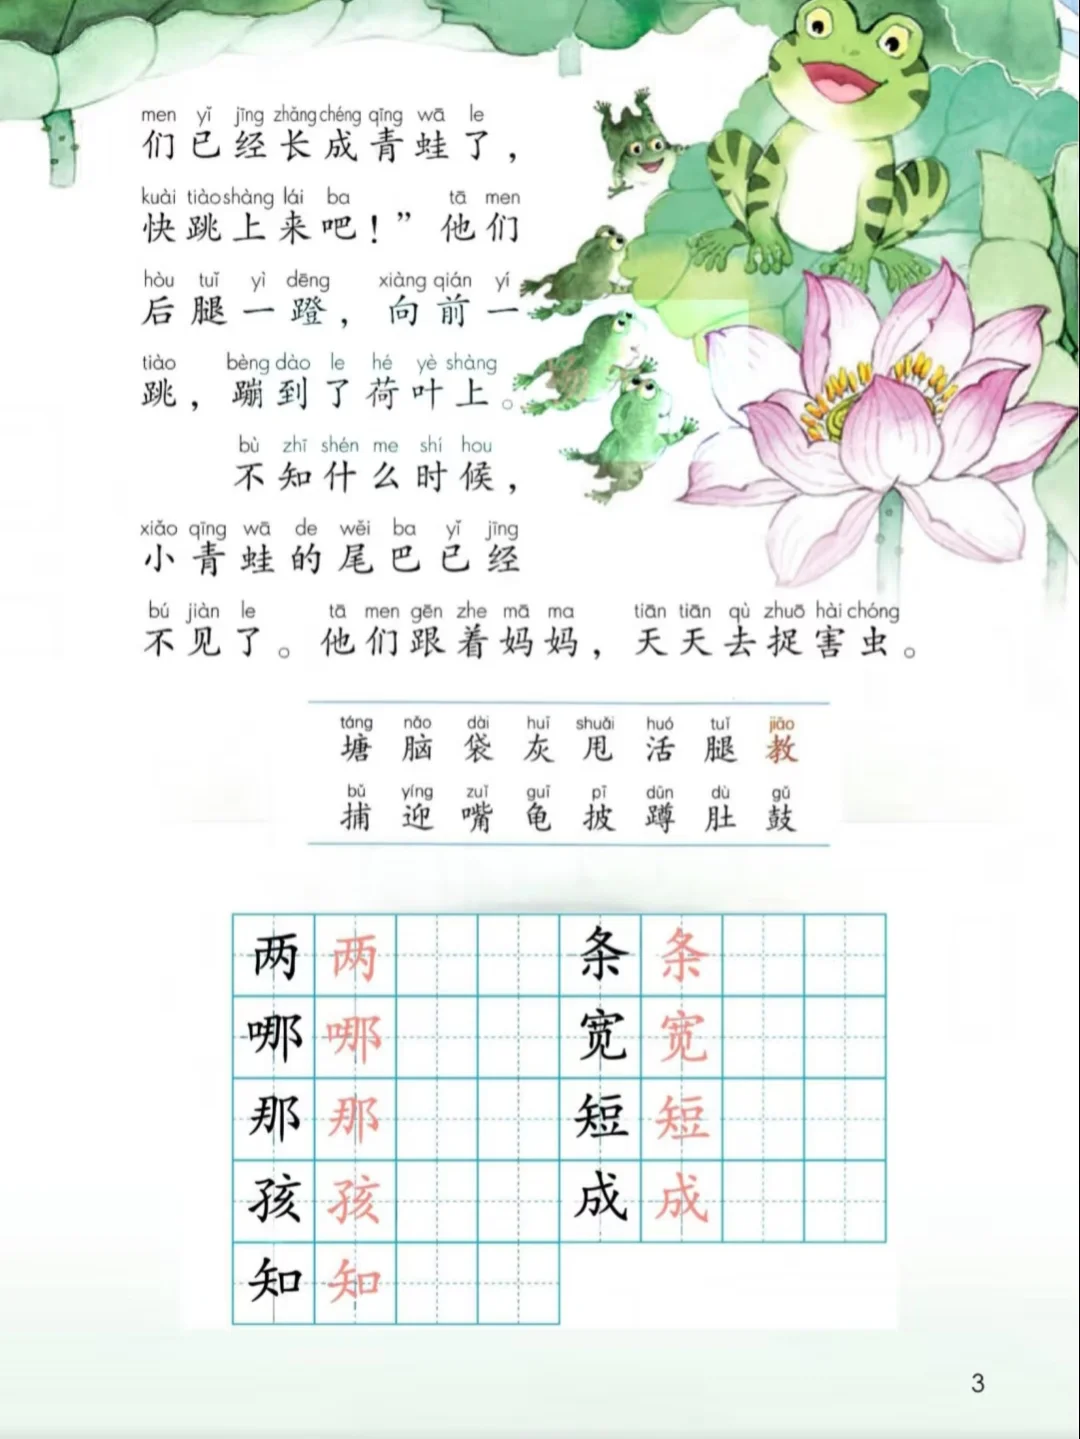 men yǐ jīng zhǎng chéng qīng wā le
们已经长成青蛙了，
kuài tiào shàng lái ba tā men
快跳上来吧！”他们
hòu tuǐ yì dēng xiàng qián yí
后腿一蹬，向前一
tiào bèng dào le hé yè shàng
跳，蹦到了荷叶上。
bù zhī shén me shí hou
不知什么时候，
xiǎo qīng wā de wěi ba yǐ jīng
小青蛙的尾巴已经
bú jiàn le tā men gēn zhe mā ma tiān tiān qù zhuō hài chóng
不见了。他们跟着妈妈，天天去捉害虫。
táng nǎo dài huī shuǎi huó tuǐ jiāo
塘 脑 袋 灰 甩 活 腿 教
bǔ yíng zuǐ guī pī dūn dù gǔ
捕 迎 嘴 龟 披 蹲 肚 鼓
两 两 条 条
哪 哪 宽 宽
那 那 短 短
孩 孩 成 成
知 知
3